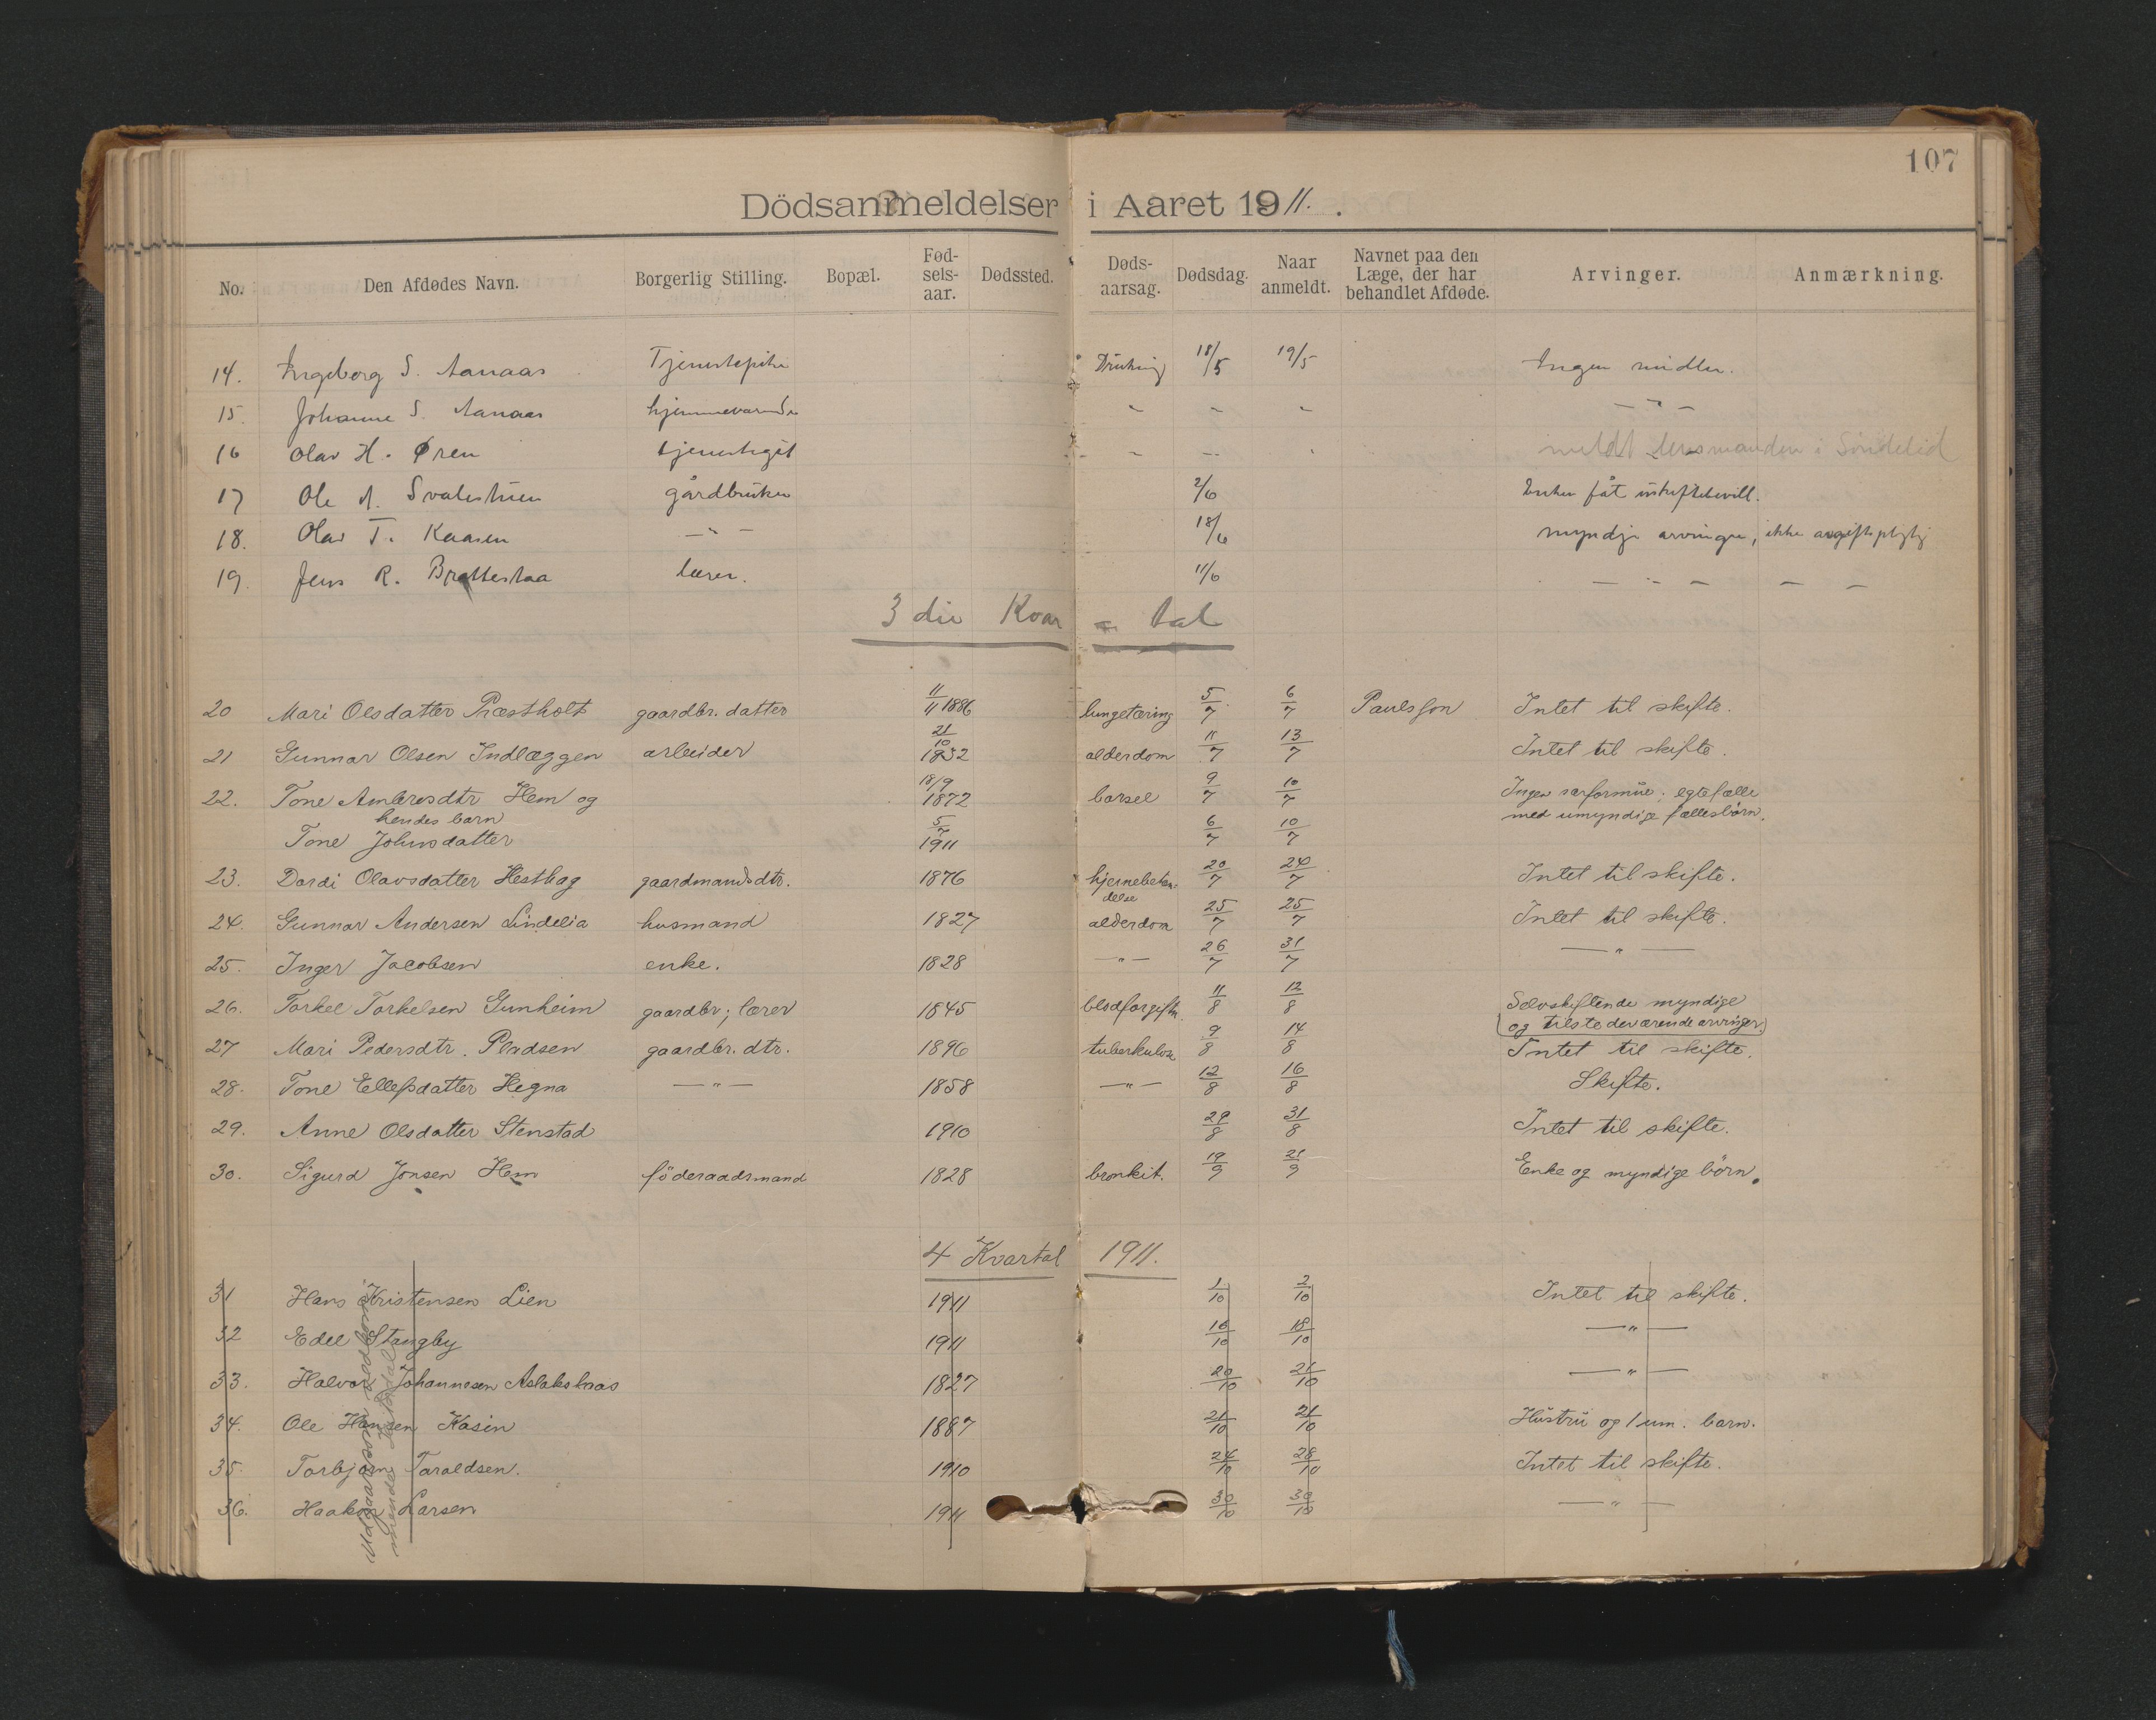 107
Dödsanmeldelser i Aaret 1911.
No. Den Afdødes Navn. Borgerlig Stilling. Bopæl. Fød-sels-aar. Dødssted. Døds-aarsag. Dødsdag. Naar anmeldt. Navnet paa den Læge, der har behandlet Afdøde. Arvinger. Anmærkning.
14. Ingeborg S. Aanaas Tjenestepike Drukning 18/5 19/5 Ingen midler.
15. Johanne S. Aanaas hjemmeværende " " " — " —
16 Olav H. Øren tjenestegut " " " meldt lensmanden i Söndeled
17 Ole A. 2/6
gårdbruker Enken fåt uskiftebevill.
18. Olav T. Kaasen — " — 18/6 myndje arvinger, ikke avgiftspligtig
19. Jens R. Brattestaa lærer. 11/6 — " — — —
3 die Kvar = tal
20 Mari Olsdatter Præstholt gaardbr. datter 11/11 1886 lungetæring 5/7 6/7 Paulsson Intet til skifte.
21 Gunnar Olsen Indlæggen arbeider 21/10 1832 alderdom 11/7 13/7 Intet til skifte.
22. Tone Ambrosdtr Hem og 18/9 1872 barsel 9/7 10/7 Ingen særformue; egtefælle
hendes barn med umyndige fællesbörn.
Tone Johnsdatter 5/7 1911 6/7 10/7
23. Dordi Olavsdatter Hesthag gaardmandsdtr. 1876 hjernebeten-delse 20/7 24/7 Intet til skifte.
24. Gunnar Andersen Lindelia husmand 1827 alderdom 25/7 25/7 Intet til skifte.
25. Inger Jacobsen enke. 1828 — " — 26/7 31/7 — " —
26. Torkel Torkelsen Gunheim gaardbr; lærer 1845 blodforgiftn. 11/8 12/8 Selvskiftende myndige
og tilstedeværende arvinger.
27 Mari Pedersdtr. Pladsen gaardbr. dtr. 1896 tuberkulos 9/8 14/8 Intet til skifte.
28. Tone Ellefsdatter Hegna — " — 1858 — " — 12/8 16/8 Skifte.
29. Anne Olsdatter Stenstad 1910 29/8 31/8 Intet til skifte.
30. Sigurd Jonsen Hem föderaadsmand 1828 bronkit. 19/9 21/9 Enke og myndige börn.
4 Kvartal 1911.
31 Hans Kristensen Lien 1911 1/10 2/10 Intet til skifte.
32 Edel Stangby 1911 16/10 18/10 — " —
33. Halvor Johannesen Aslakshaas 1827 20/10 21/10 — " —
34. Ole Hansen Kasin 1887 21/10 21/10 Hustru og 1 um. barn.
35. Torbjørn Taraldsen. 1910 24/10 28/10 Intet til skifte.
36. Haakon Larsen 1911 30/10 30/10 — " —